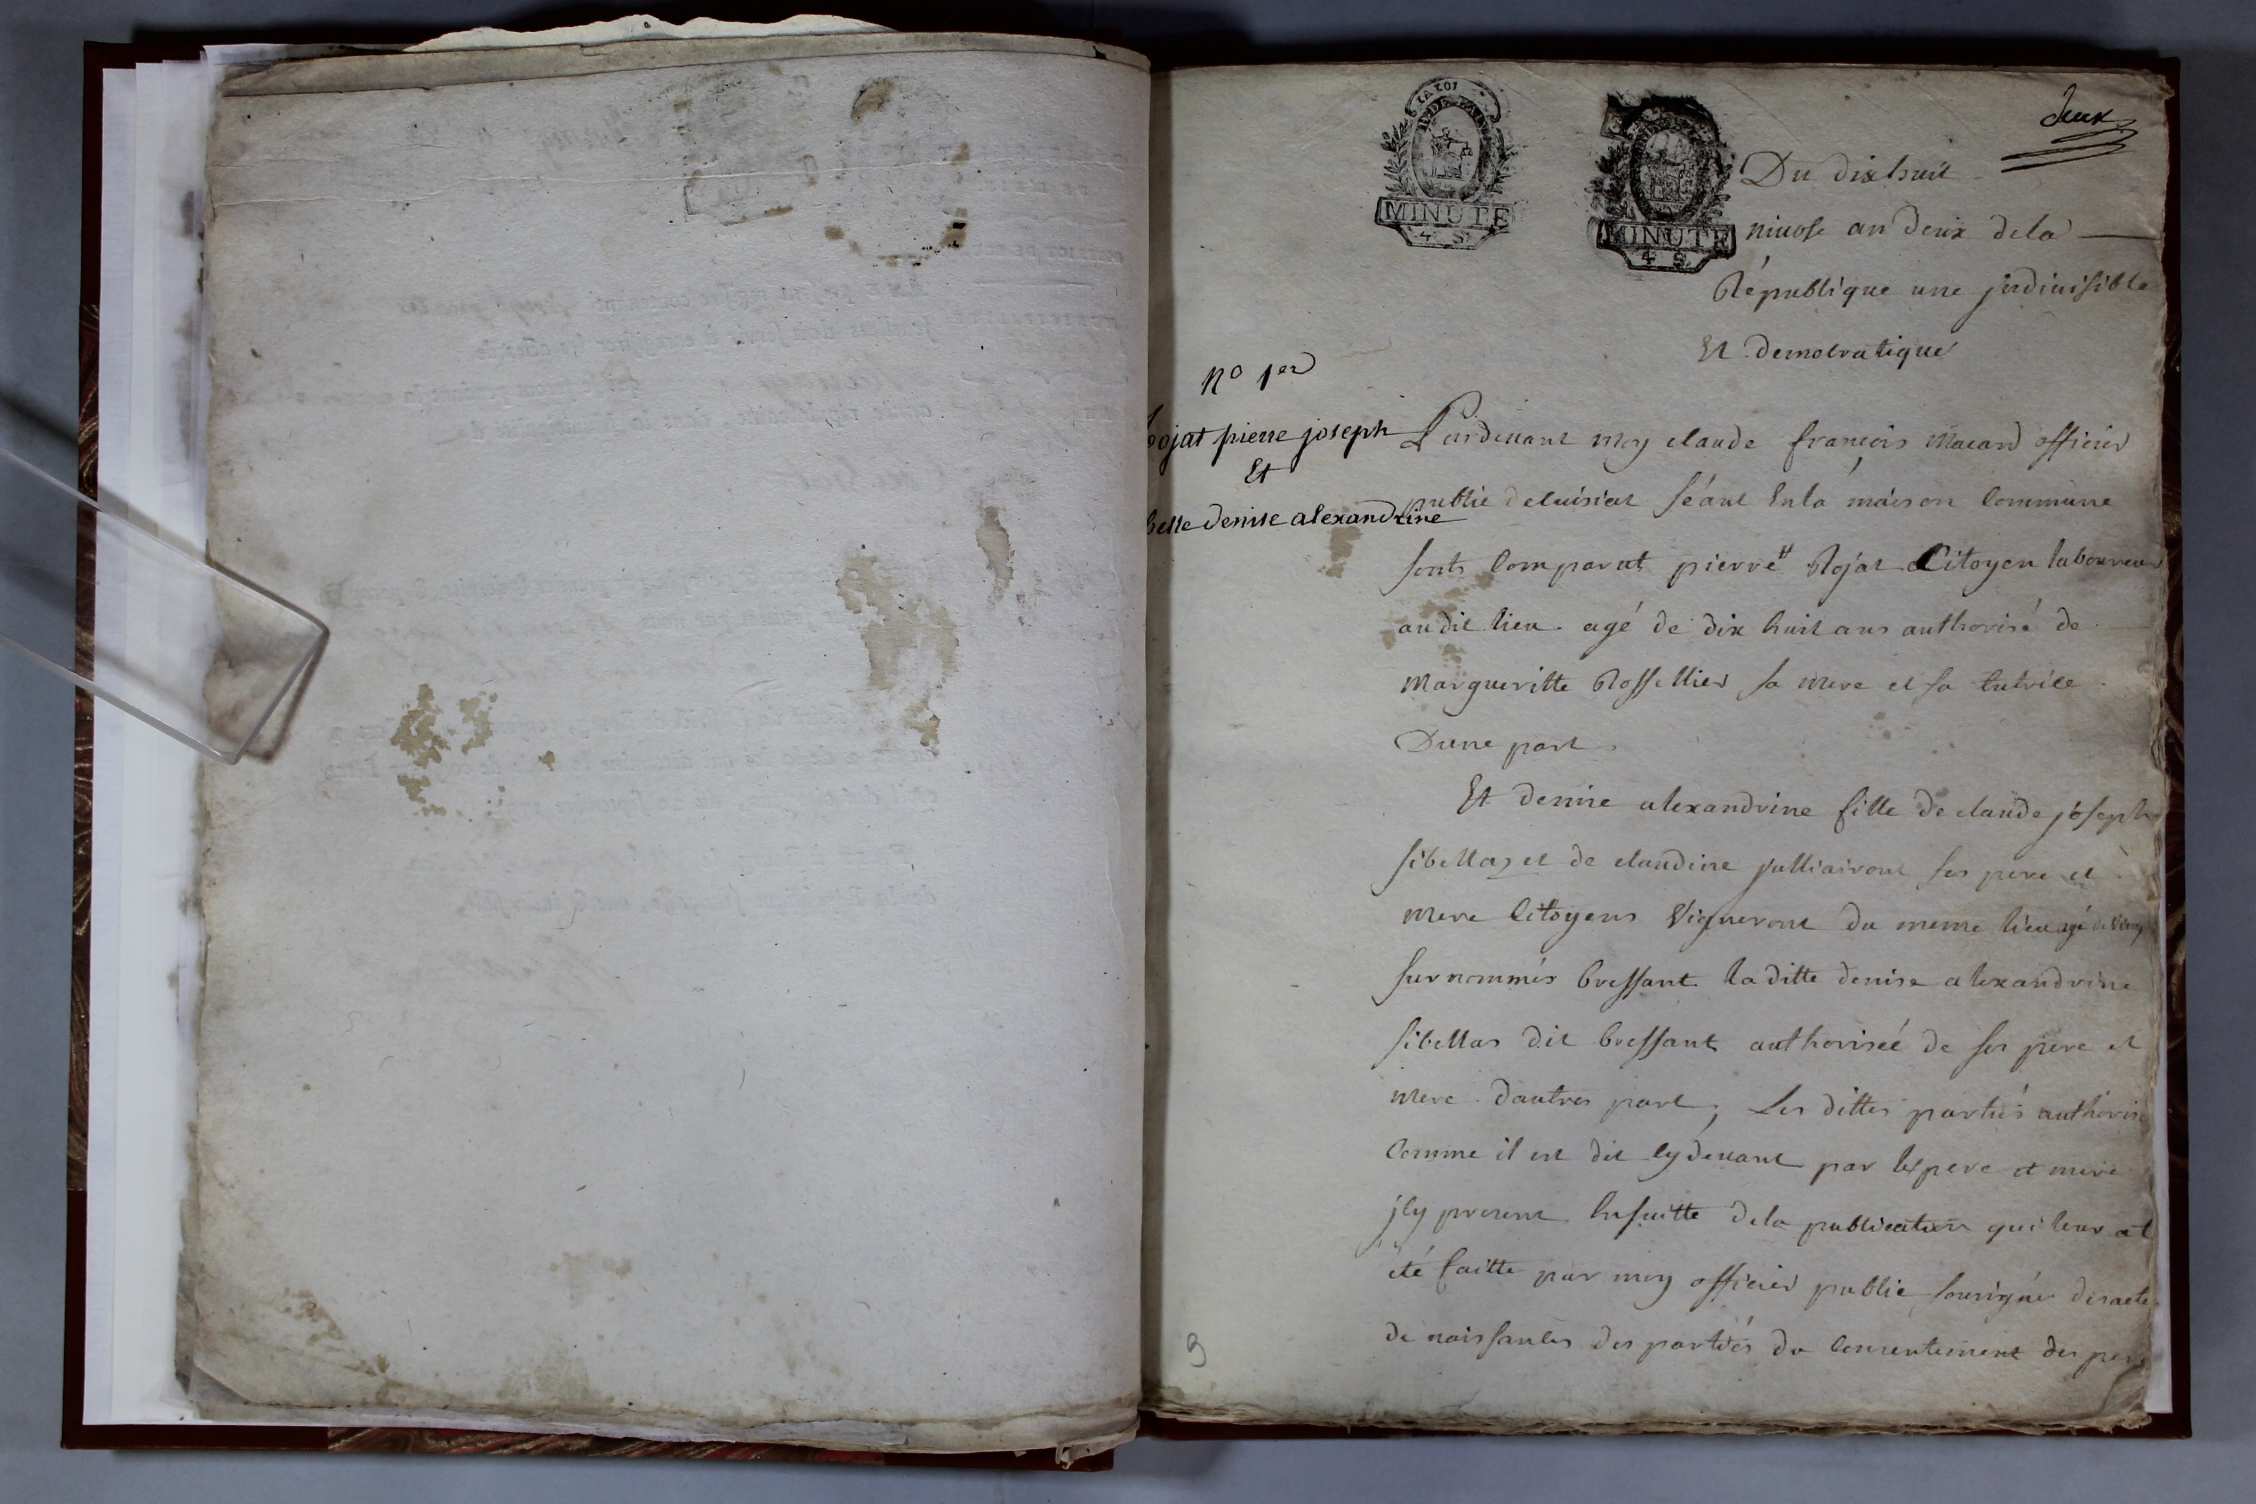 LA LOI
R. DE L'AIN
MINUTE
4 S.
MINUTE
4 S.
deux
Du dixhuit
nivose an deux dela
République une jndiuisible
Et democratique
N° 1er
Rojat pierre joseph
Et
denise alexandrine
Pardeuant moy claude francois Macard officier
public decuisiat séant En la maison Commune
sonts Comparut pierre Rojat Citoyen laboureur
audit lieu agé de dix huit ans authorisé de
Margueritte Rossellier sa mere et sa tutrice
Dune part
Et denise alexandrine fille de claude joseph
sibellas et de claudine pulliairont ses pere et
mere Citoyens Vigneront du meme lieu agé de vingt
surnommés bressant laditte denise alexandrine
sibellas dit bressant authoriseé de ses pere et
mere dautres part, Les dittes partiés authoris
Comme il est dit Cy deuant par les pere et mere
jcy present Ensuitte dela publication qui leur at
été faitte par moy officier public sousigné desacte
de naissances des partiés du Consentement des pere
9